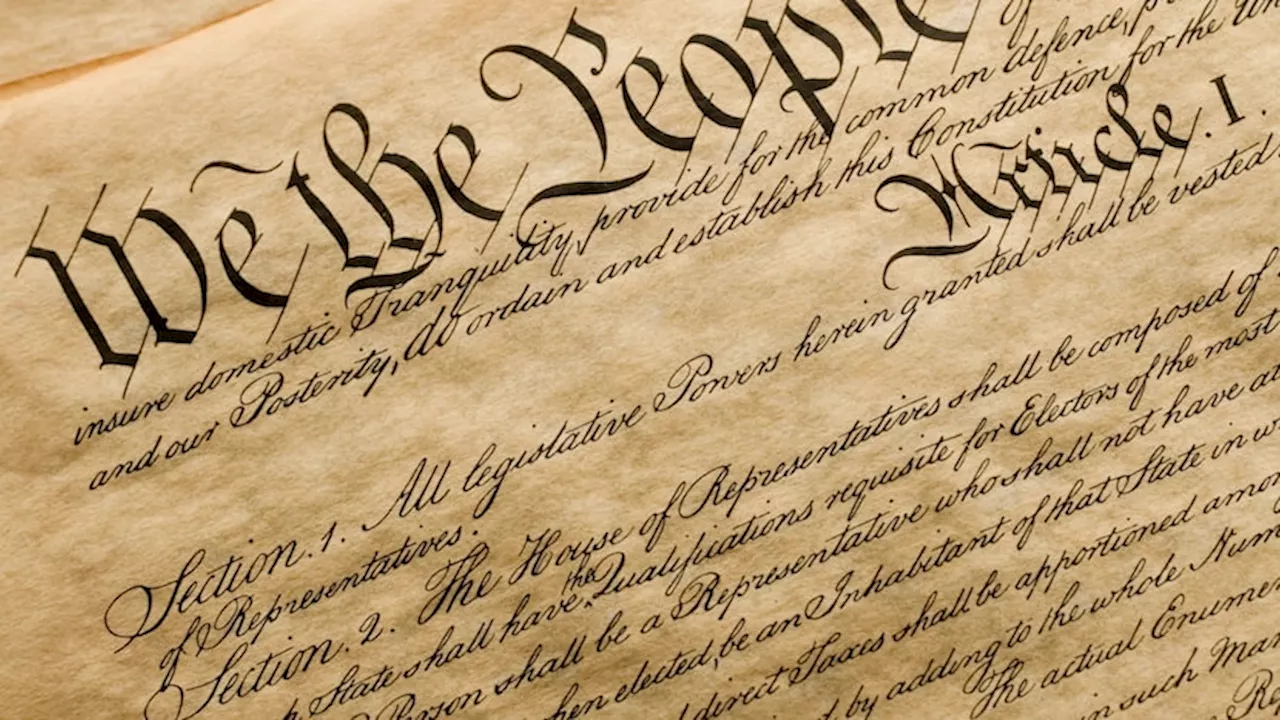 We the People
insure domestic Tranquility, provide for the common defence,
and our Posterity, do ordain and establish this Constitution for the
Article. I.
Section. 1. All legislative Powers herein granted shall be vested
of Representatives.
Section. 2. The House of Representatives shall be composed of
State shall have the Qualifications requisite for Electors of the most
Person shall be a Representative who shall not have
when elected, be an Inhabitant of that State in
direct Taxes shall be apportioned
by adding to the whole Num
The actual Enume
in such Man